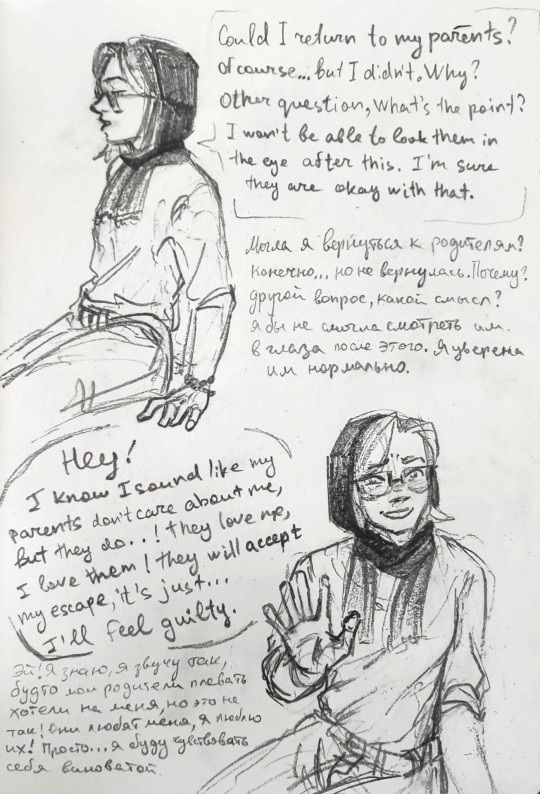 Could I return to my parents?
Of course... but I didn't. Why?
Other question, what's the point?
I won't be able to look them in
the eye after this. I'm sure
they are okay with that.
Могла я вернуться к родителям?
Конечно... но не вернулась. Почему?
другой вопрос, какой смысл?
Я бы не смогла смотреть им
в глаза после этого. Я уверена
им нормально.
Hey!
I know I sound like my
parents don't care about me,
but they do..! they love me,
I love them! they will accept
my escape, it's just...
I'll feel guilty.
Эй! Я знаю, я звучу так,
будто мои родители плевать
хотели на меня, но это не
так! Они любят меня, я люблю
их! Просто... я буду чувствовать
себя виноватой.